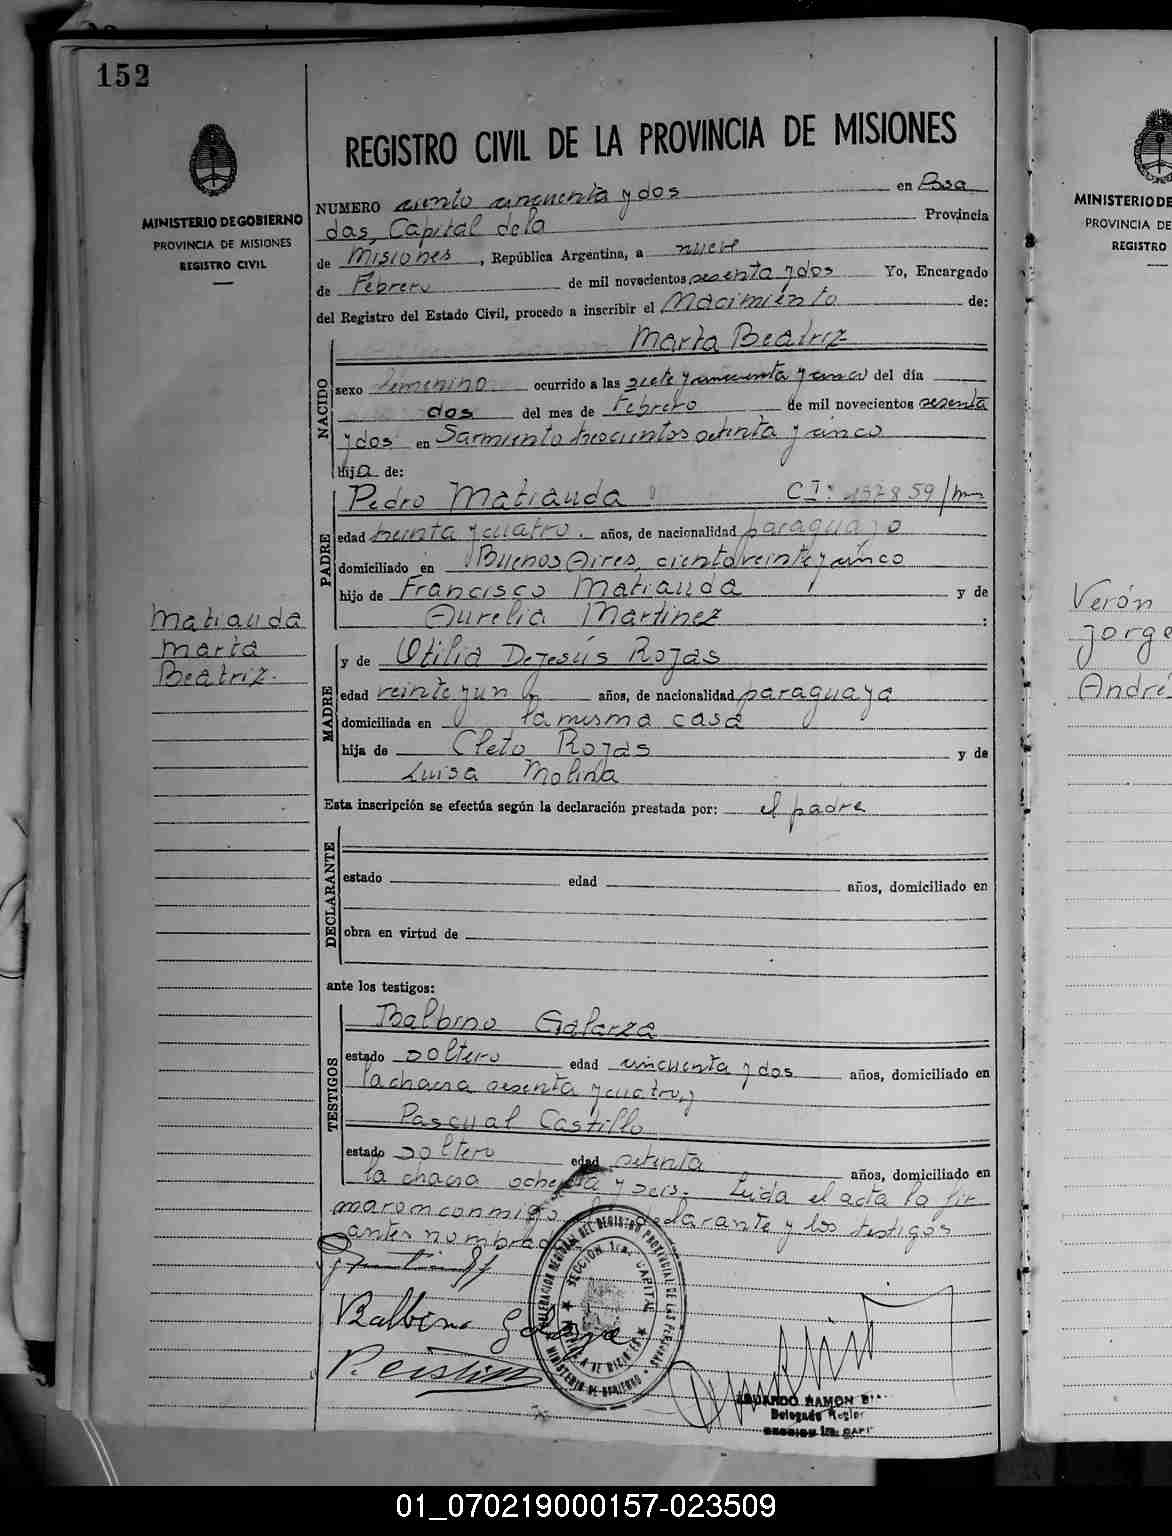 152
MINISTERIO DE GOBIERNO
PROVINCIA DE MISIONES
REGISTRO CIVIL
REGISTRO CIVIL DE LA PROVINCIA DE MISIONES
NUMERO ciento cincuenta y dos en Posa
das, Capital de la Provincia
de Misiones, República Argentina, a nueve
de Febrero de mil novecientos sesenta y dos Yo, Encargado
del Registro del Estado Civil, procedo a inscribir el Nacimiento de:
Marta Beatriz
NACIDO
sexo femenino ocurrido a las siete y cincuenta y cinco del día
dos del mes de Febrero de mil novecientos sesenta
y dos en Sarmiento trescientos setenta y cinco
hija de:
PADRE
Pedro Matiauda C.I:
edad treinta y cuatro. años, de nacionalidad paraguayo
domiciliado en Buenos Aires, ciento veinte y cinco
hijo de Francisco Matiauda y de
Aurelia Martinez :
MADRE
y de Otilia Dejesús Rojas
edad veinte y un años, de nacionalidad paraguaya
domiciliada en la misma casa
hija de Cleto Rojas y de
Luisa Molina
Matiauda
Marta
Beatriz.
Esta inscripción se efectúa según la declaración prestada por: el padre
DECLARANTE
estado edad años, domiciliado en
obra en virtud de
ante los testigos:
TESTIGOS
Balbino Galarza
estado soltero edad cincuenta y dos años, domiciliado en
la chacra sesenta y cuatro, y
Pascual Castillo
estado soltero edad setenta años, domiciliado en
la chacra ochenta y seis. Leida el acta la fir
maron conmigo, el declarante y los testigos
antes nombrados
Balbino Galarza
SECCION 1ra. CAPITAL
MINISTERIO DE GOBIERNO
EDUARDO RAMON
Delegado
SECCION 1a. CAPI
MINISTERIO DE
PROVINCIA DE
REGISTRO
Verón
Jorge
André
01_070219000157-023509